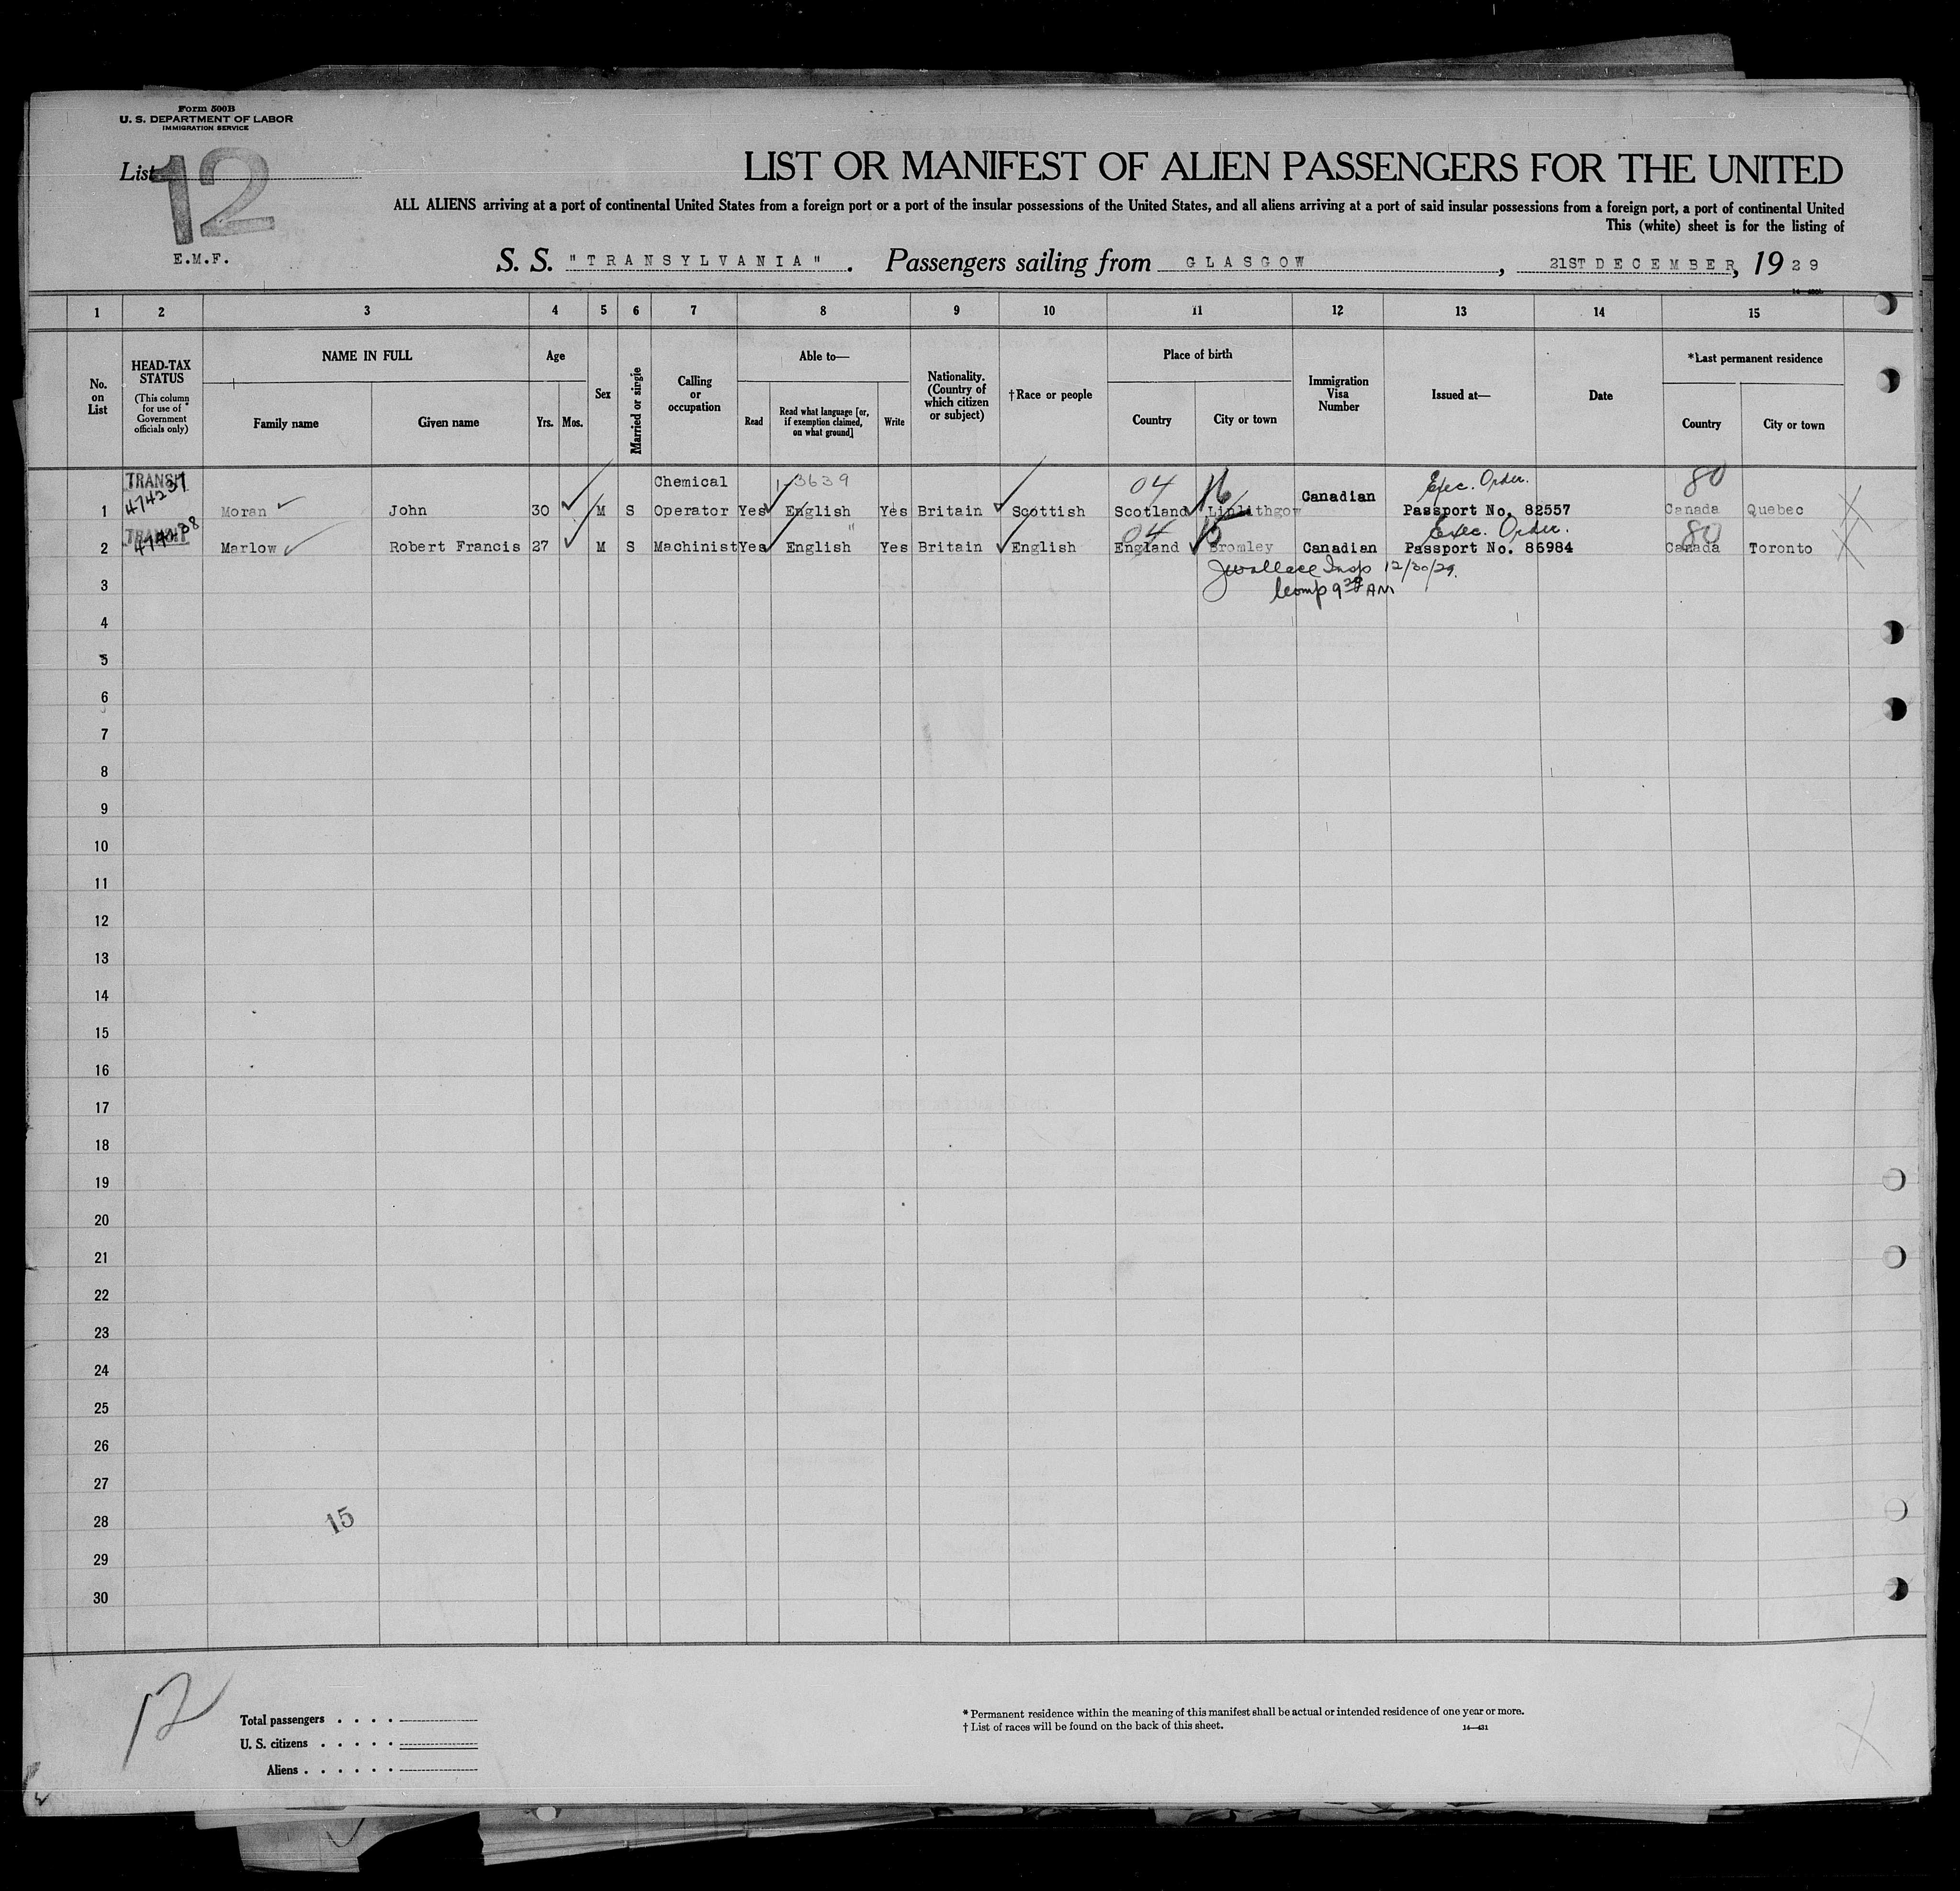 Form 500B
U. S. DEPARTMENT OF LABOR
IMMIGRATION SERVICE
List 12
E.M.F.
LIST OR MANIFEST OF ALIEN PASSENGERS FOR THE UNITED
ALL ALIENS arriving at a port of continental United States from a foreign port or a port of the insular possessions of the United States, and all aliens arriving at a port of said insular possessions from a foreign port, a port of continental United
This (white) sheet is for the listing of
S. S. "TRANSYLVANIA". Passengers sailing from GLASGOW, 21ST DECEMBER, 1929
1 2 3 4 5 6 7 8 9 10 11 12 13 14 15
No. on List
HEAD-TAX STATUS
(This column for use of Government officials only)
NAME IN FULL
Family name
Given name
Age
Yrs.
Mos.
Sex
Married or single
Calling or occupation
Able to—
Read
Read what language [or, if exemption claimed, on what ground]
Write
Nationality. (Country of which citizen or subject)
†Race or people
Place of birth
Country
City or town
Immigration Visa Number
Issued at—
Date
*Last permanent residence
Country
City or town
TRANSIT 474237 Chemical 1-3639 04 16 Exec. Order. 80
1 Moran John 30 M S Operator Yes English Yes Britain Scottish Scotland Linlithgow Canadian Passport No. 82557 Canada Quebec
TRANSIT 04 15 Exec. Order. 80
2 Marlow Robert Francis 27 M S Machinist Yes English Yes Britain English England Bromley Canadian Passport No. 86984 Canada Toronto
JWallace Insp 12/30/29.
3
Comp AM
4
5
6
7
8
9
10
11
12
13
14
15
16
17
18
19
20
21
22
23
24
25
26
27
28
15
29
30
12
Total passengers . . . .
U. S. citizens . . . . .
Aliens . . . . . .
* Permanent residence within the meaning of this manifest shall be actual or intended residence of one year or more.
† List of races will be found on the back of this sheet.
14—431